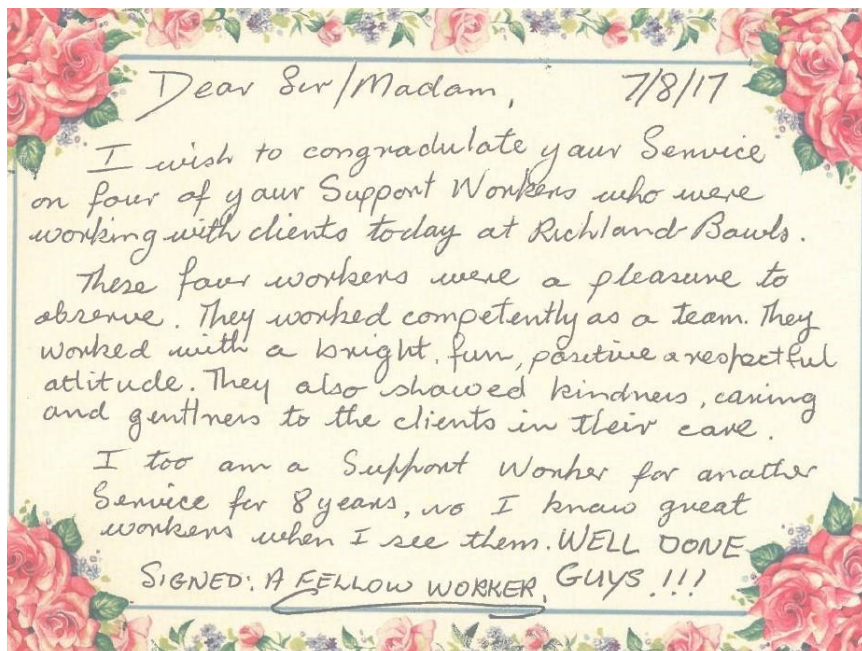 Dear Sir/Madam, 7/8/17
I wish to congradulate your Service
on four of your Support Workers who were
working with clients today at Richland Bowls.
These four workers were a pleasure to
observe. They worked competently as a team. They
worked with a bright, fun, positive & respectful
attitude. They also showed kindness, caring
and gentlness to the clients in their care.
I too am a Support Worker for another
Service for 8 years, so I know great
workers when I see them. WELL DONE
SIGNED: A FELLOW WORKER. GUYS!!!